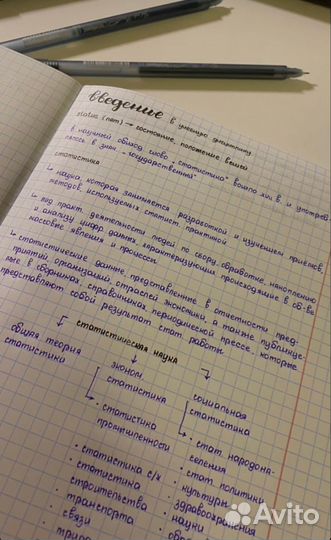 введение в учебную дисциплину
status (лат) → состояние, положение вещей
в научный обиход слово „статистика" вошло XVIII в. и употреб
лялось в знач. „государственный"
статистика
↳ наука, которая занимается разработкой и изучением приёмов,
методов, используемых статист. практикой
↳ под практ. деятельности людей по сбору, обработке, накоплению
и анализу цифр. данных, характеризующих происходящие в об-ве
массовые явления и процессы.
↳ статистические данные, представленные в отчетности пред-
приятий, организаций, отраслей экономики, а также публикуе-
мые в сборниках, справочниках, периодической прессе, которые
представляют собой результат стат. работы
статистическая наука
общая теория
статистики
эконом.
статистика
социальная
статистика
• статистика
промышленности
• статистика с/х
• статистика
строительства
• транспорта
• связи
• стат. народона-
селения
• стат. политики
• культуры
• здравоохранения
• науки
Avito